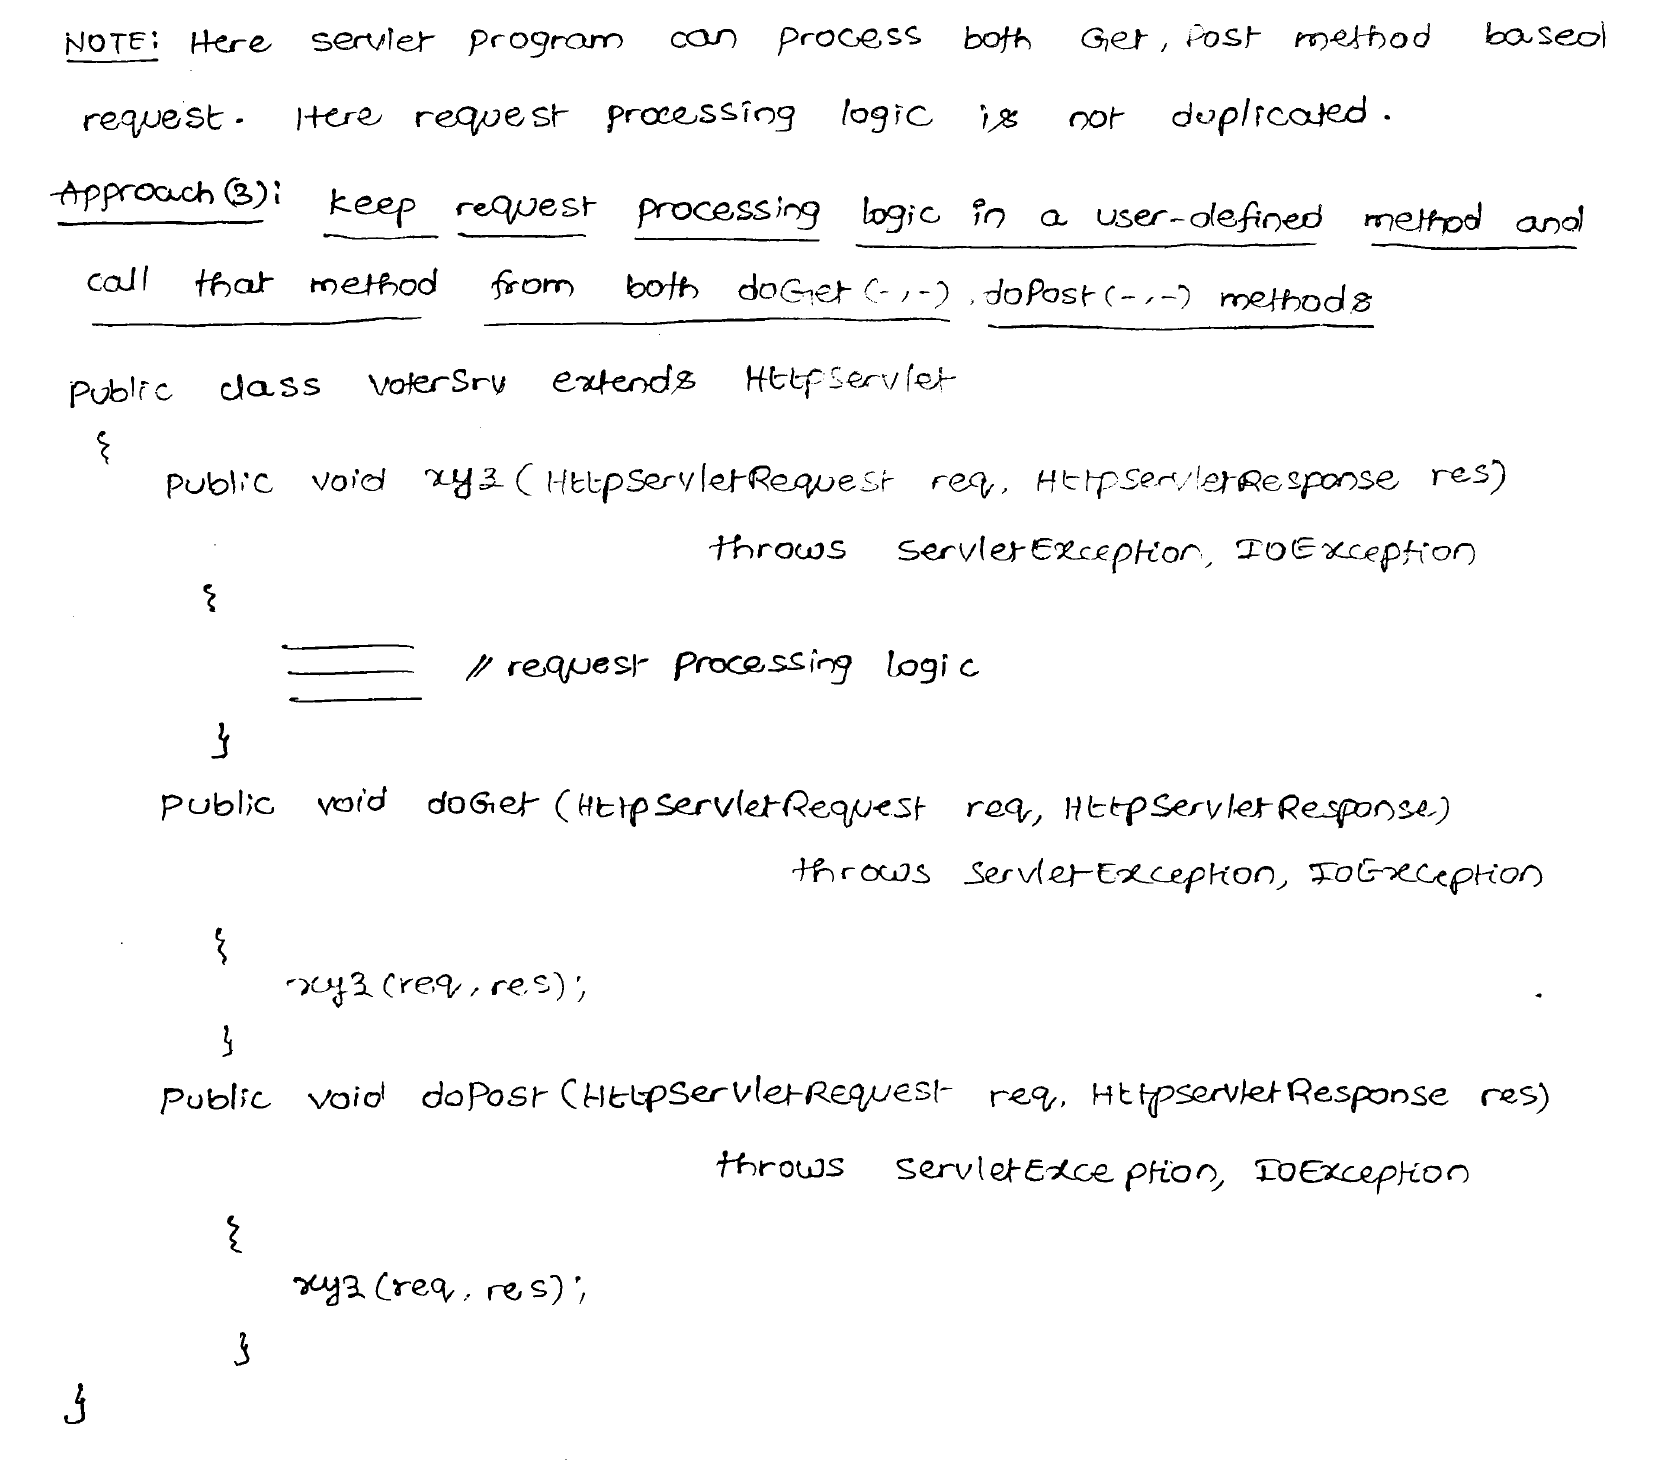 NOTE: Here servlet program can process both Get, Post method based
request. Here request processing logic is not duplicated.
Approach(3): keep request processing logic in a user-defined method and
call that method from both doGet(-,-), doPost(-,-) methods
Public class VoterSrv extends HttpServlet
{
public void xyz(HttpServletRequest req, HttpServletResponse res)
throws ServletException, IOException
{
// request processing logic
}
public void doGet(HttpServletRequest req, HttpServletResponse)
throws ServletException, IOException
{
xyz(req, res);
}
public void doPost(HttpServletRequest req, HttpServletResponse res)
throws ServletException, IOException
{
xyz(req, res);
}
}